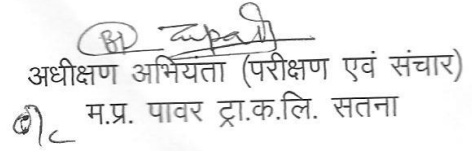 अधीक्षण अभियंता (परीक्षण एवं संचार)
म.प्र. पावर ट्रा.क.लि. सतना